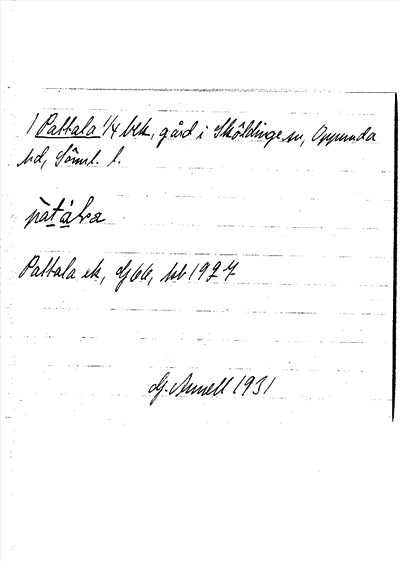 1 Pattala 1/4 blk, gård i Sköldinge sn, Oppunda
hd, Söml. l.
Pattala ek, Gj bb, 1927
G. Annell 1931